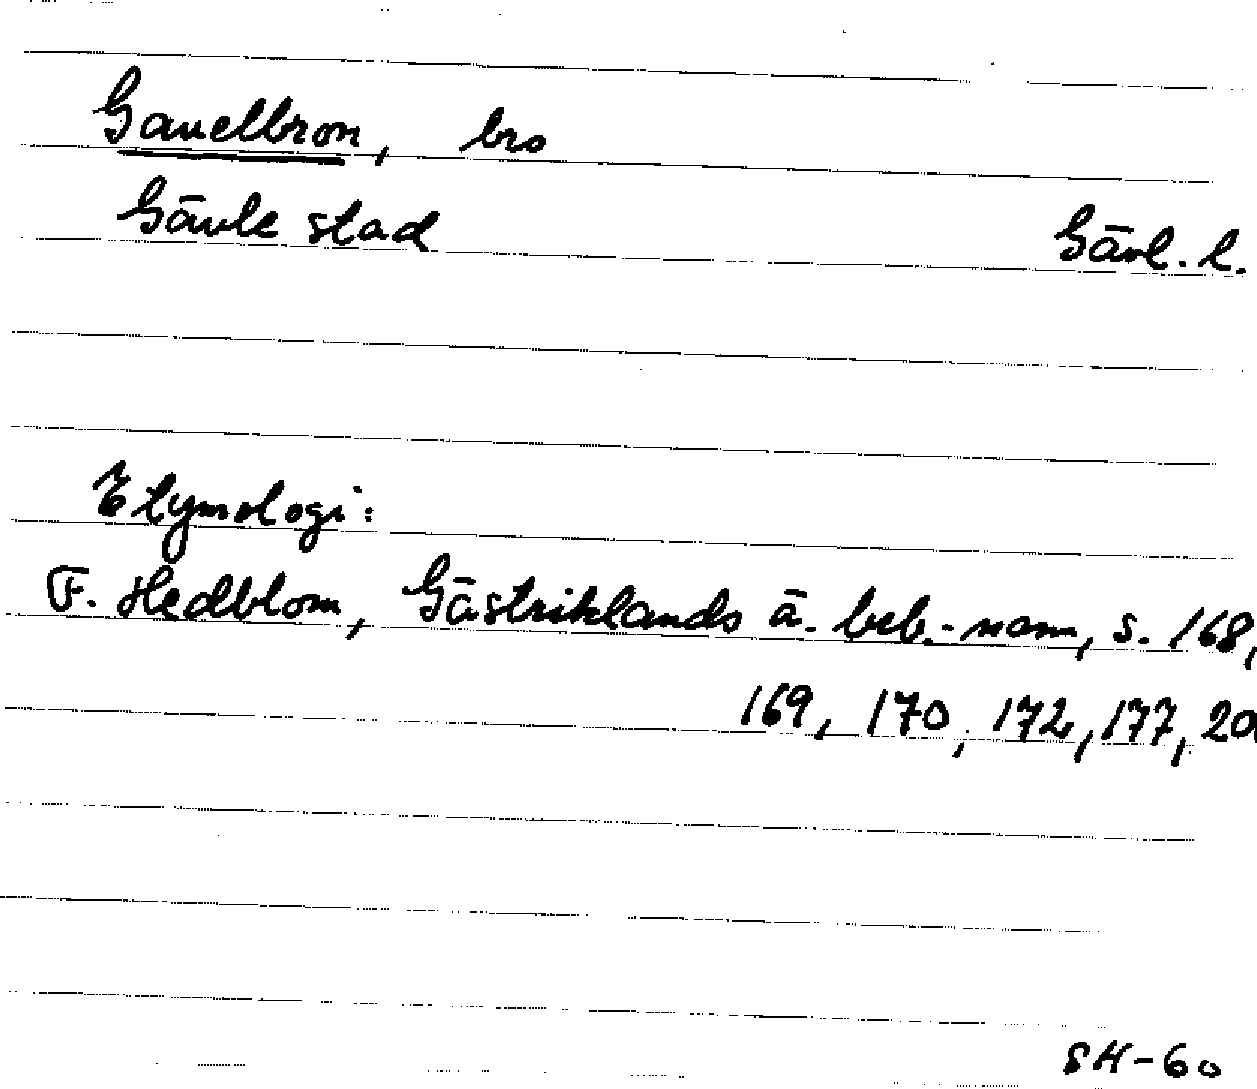 Gavelbron, bro
Gävle stad Gävl. l.
Etymologi:
F. Hedblom, Gästriklands ä. beb.-namn, s. 168,
169, 170, 172, 177,
SH-60